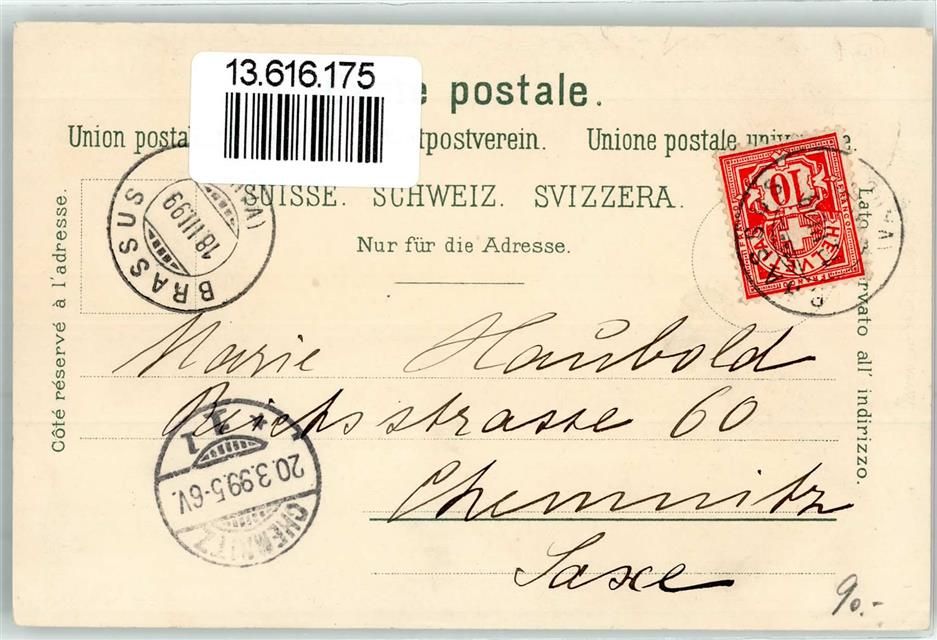 13.616.175
e postale.
Union posta tpostverein. Unione postale unive e.
SUISSE. SCHWEIZ. SVIZZERA.
Nur für die Adresse.
Côté réservé à l'adresse.
Lato ervato all' indirizzo.
BRASSUS
18.III.99
10
FRANCO
HELVETIA
Marie Haubold
Reichsstrasse 60
Chemnitz
Saxe
CHEMNITZ
20.3.99.5-6V.
* 1 1
90.-